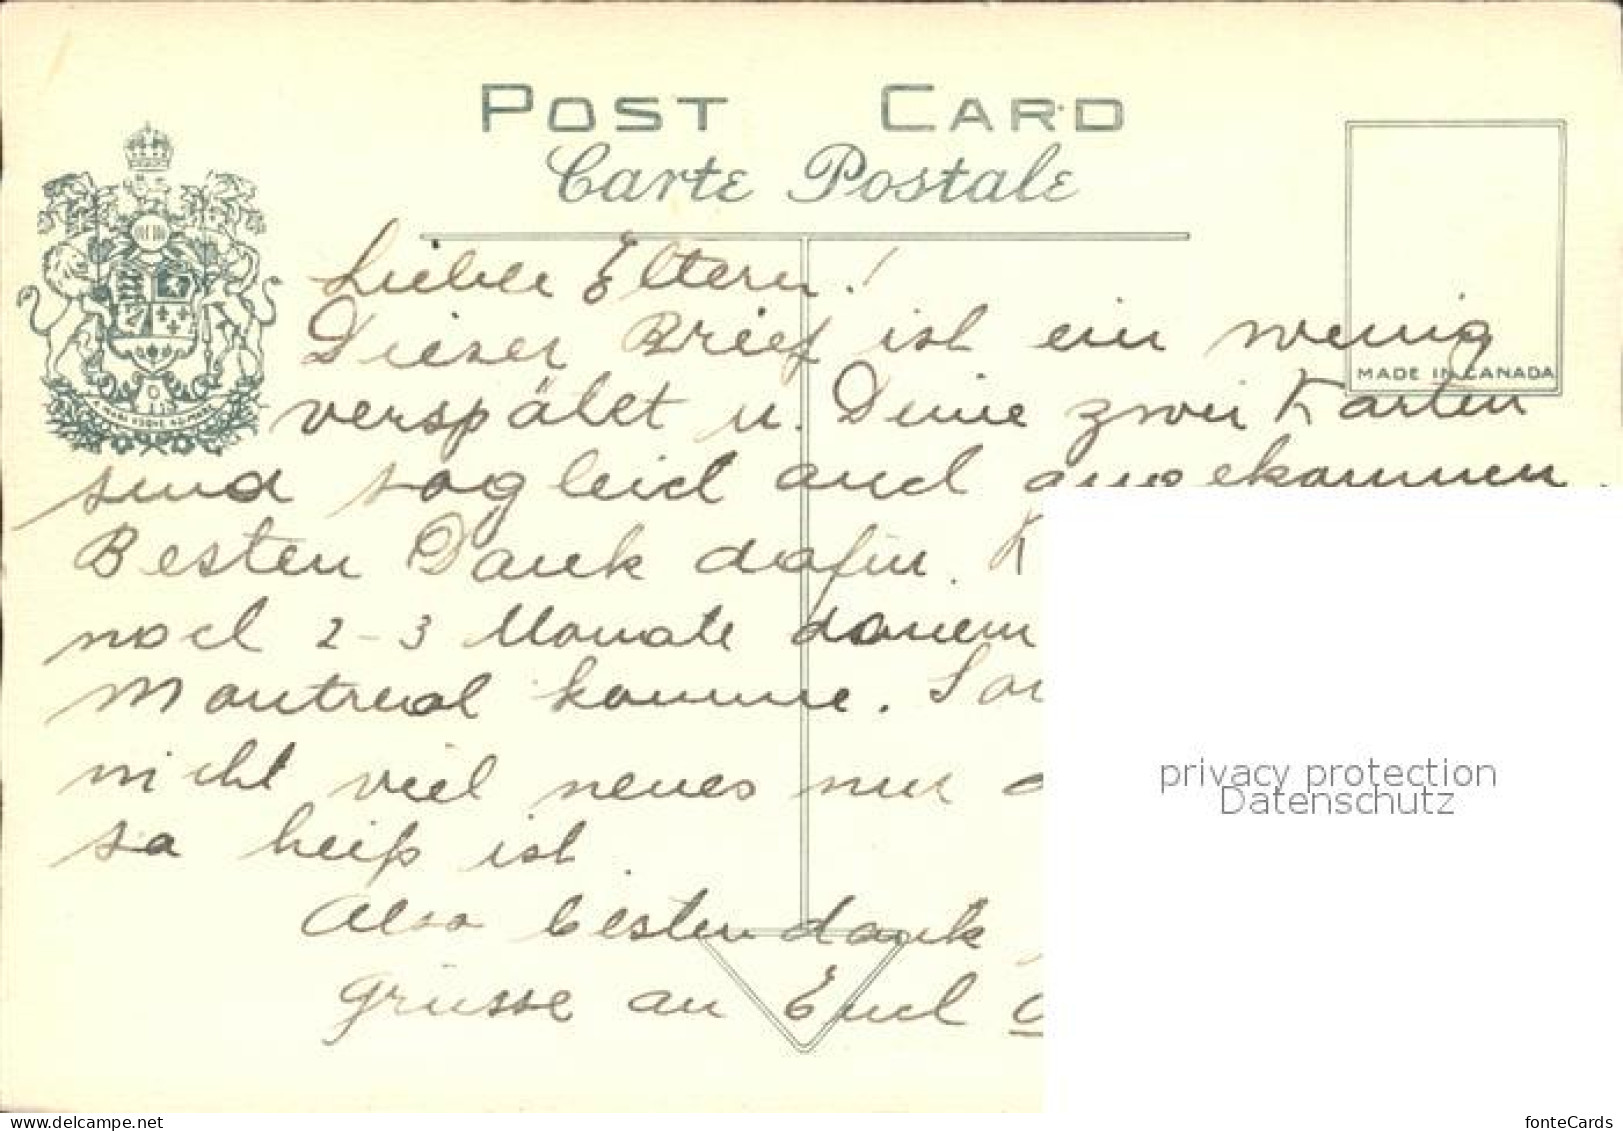 POST CARD
Carte Postale
Liebe Eltern!
Dieser Brief ist ein wenig
MADE IN CANADA
verspätet u. Deine zwei Karten
sind sogleich auch angekommen.
Besten Dank dafür. K
noch 2-3 Monate dauern
Montreal komme. Son
nicht viel neues nur d
so heiß ist.
Also besten dank
grüsse an Euch
privacy protection
Datenschutz
www.delcampe.net
fonteCards